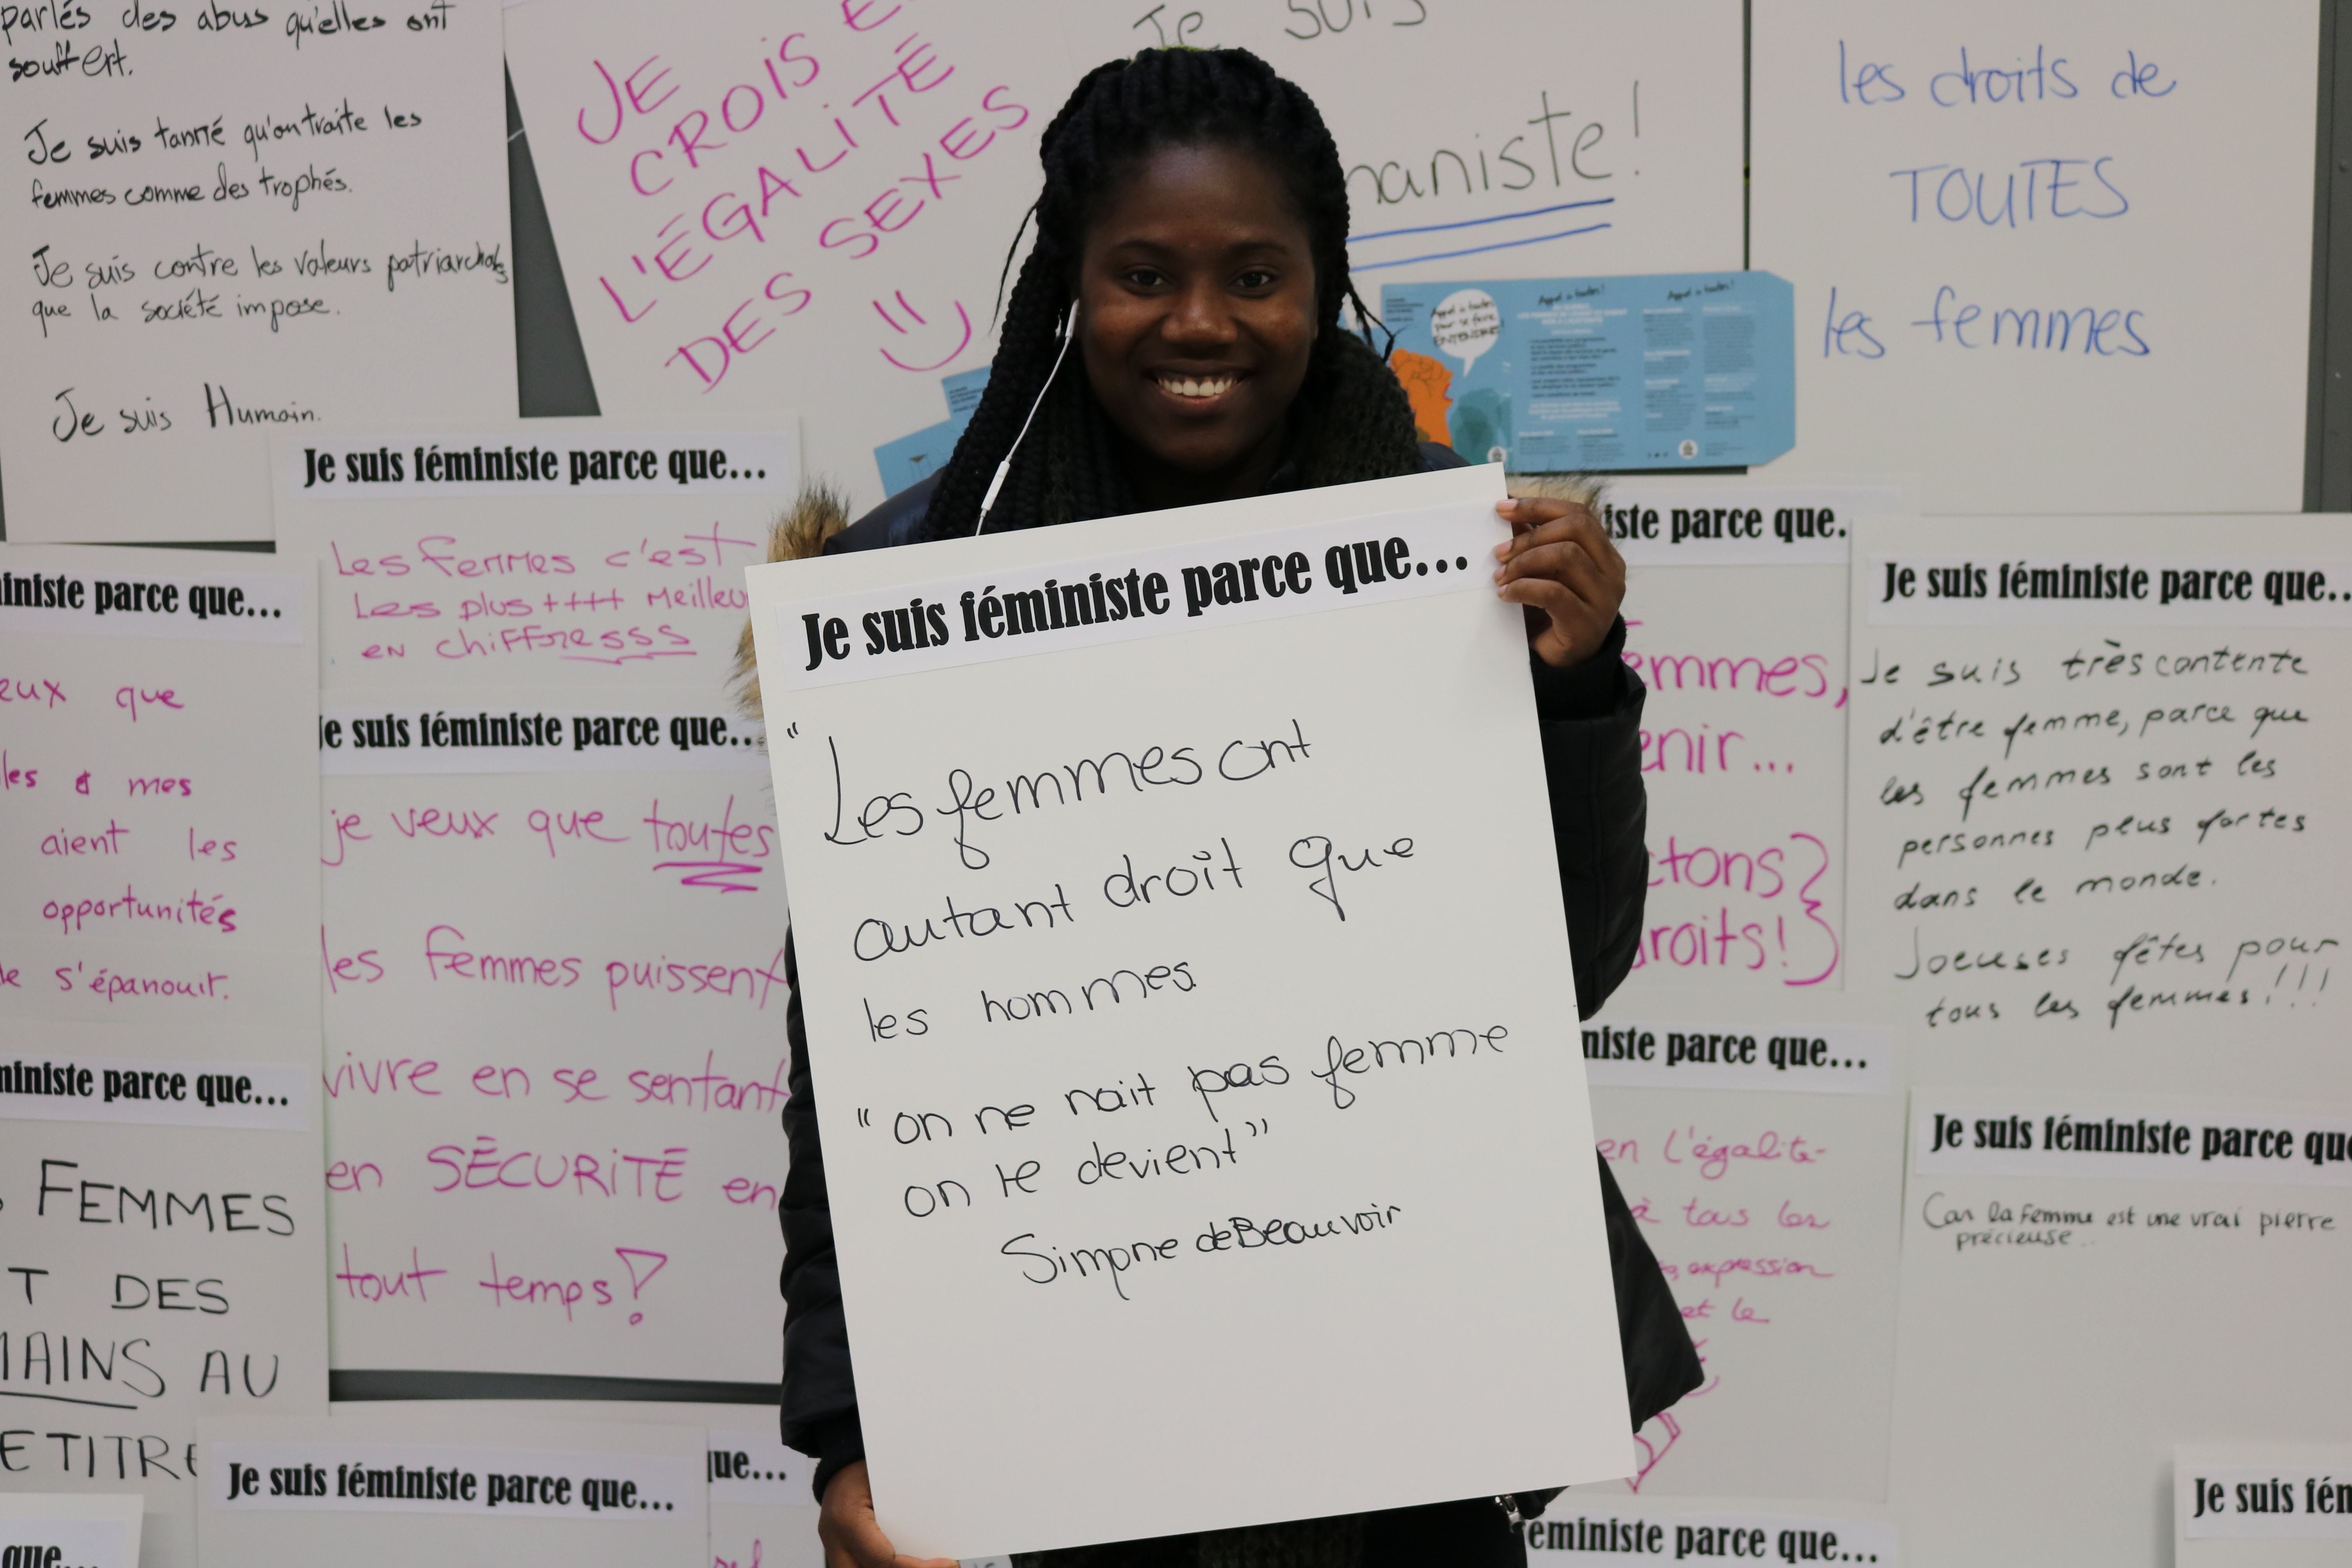 parlés des abus qu'elles ont
souffert.
Je suis tanné qu'on traite les
femmes comme des trophés.
Je suis contre les valeurs patriarchales
que la société impose.
Je suis Humain.
JE
CROIS
L'ÉGALITÉ
DES SEXES
Je suis
maniste!
les droits de
TOUTES
les femmes
Appel à toutes
pour se faire
ENTENDRE!
Appel à toutes!
Appel à toutes!
Je suis féministe parce que...
Les femmes c'est
Les plus ++++ meilleu
en chiffresss
ministe parce que...
eux que
les & mes
aient les
opportunités
de s'épanouir.
Je suis féministe parce que...
je veux que toutes
les femmes puissent
vivre en se sentant
en SÉCURITÉ en
tout temps!
ministe parce que...
FEMMES
T DES
MAINS AU
E TITRE
que...
Je suis féministe parce que...
que...
Je suis féministe parce que...
" Les femmes ont
autant droit que
les hommes.
" on ne nait pas femme
on le devient"
Simone de Beauvoir
iste parce que.
emmes,
enir...
ctons
roits!
niste parce que...
en l'égalité
à tous les
expression
et le
éministe parce que...
Je suis féministe parce que..
Je suis très contente
d'être femme, parce que
les femmes sont les
personnes plus fortes
dans le monde.
Joeuses fêtes pour
tous les femmes!!!
Je suis féministe parce que
Car la femme est une vrai pierre
précieuse..
Je suis fém